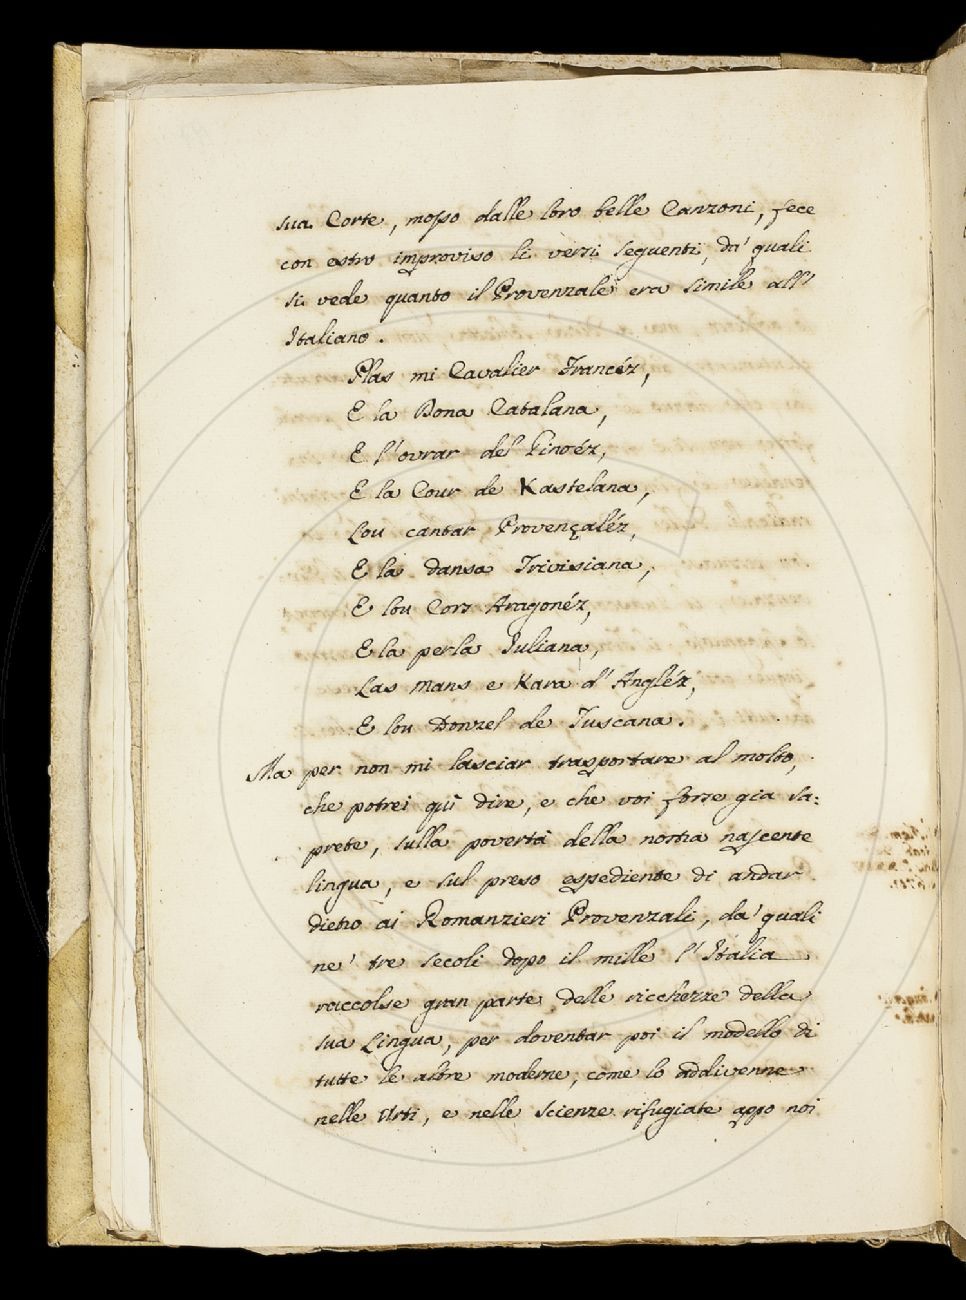 sua Corte, mosso dalle loro belle Canzoni, fece
con estro improviso li versi seguenti, da' quali
si vede quanto il Provenzale era simile all'
Italiano.
Plas mi Cavalier Francéz,
E la Dona Catalana,
E l'ovrar del Ginoéz,
E la Cour de Kastelana,
Lou cantar Provençaléz,
E la dansa Trivisiana,
E lou Cors Aragonéz,
E la perla Juliana,
Las mans e Kara d'Angléz,
E lou Donzel de Tuscana.
Ma per non mi lasciar trasportare al molto,
che potrei quì dire, e che voi forse gia sa:
prete, sulla povertà della nostra nascente
lingua, e sul preso espediente di andar
dietro ai Romanzieri Provenzali, da' quali
ne' tre secoli dopo il mille l'Italia
raccolse gran parte delle ricchezze della
sua Lingua, per doventar poi il modello di
tutte le altre moderne, come lo addivenne
nelle Arti, e nelle scienze rifugiate appo noi